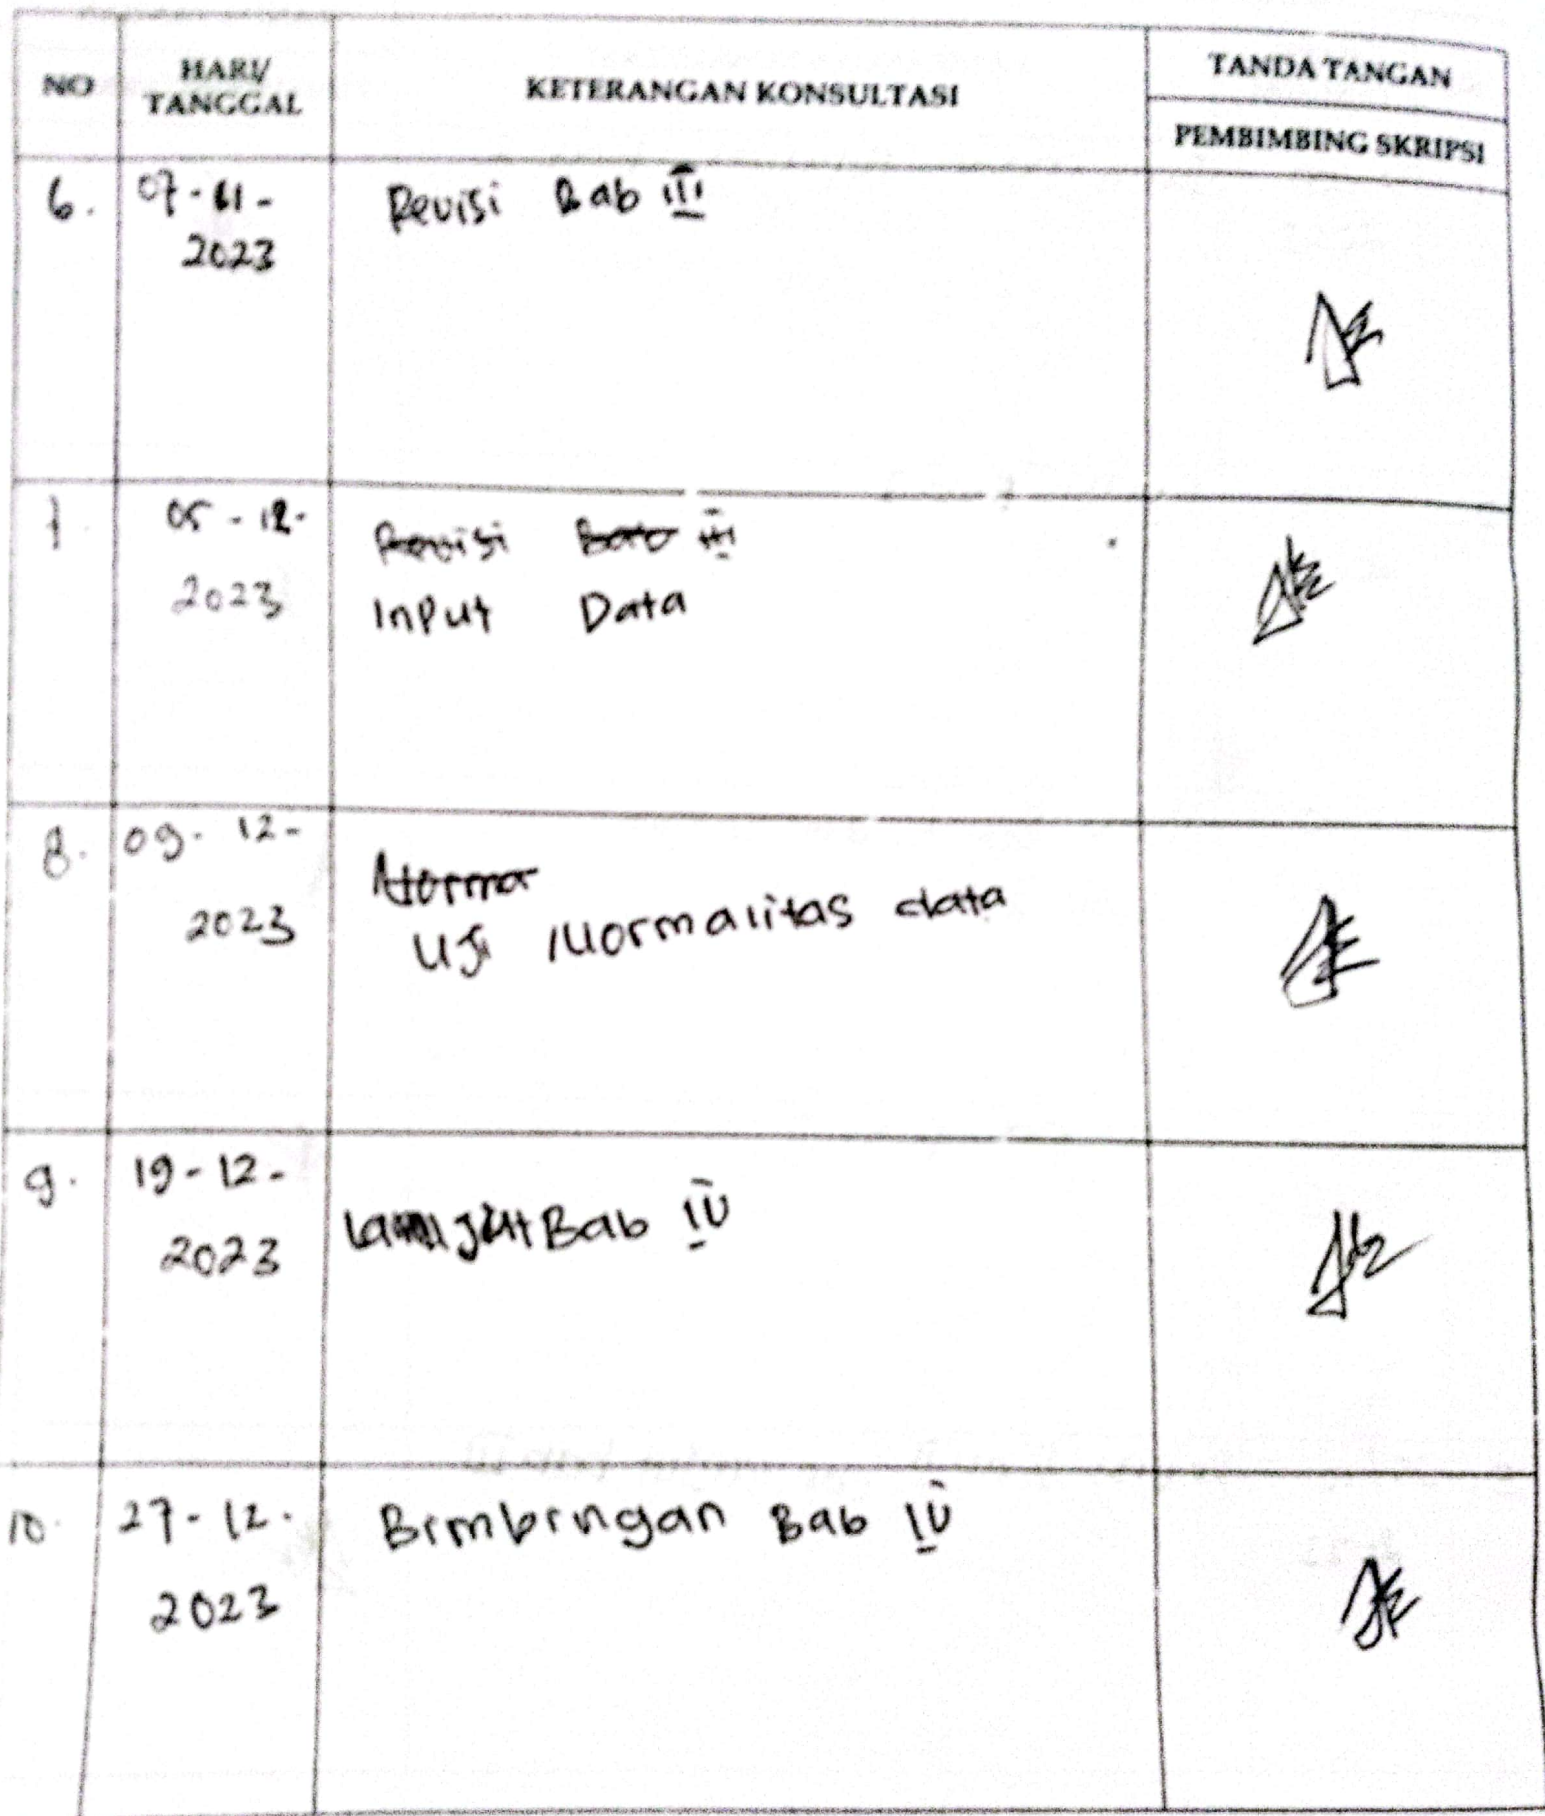 NO
HARI/
TANGGAL
KETERANGAN KONSULTASI
TANDA TANGAN
PEMBIMBING SKRIPSI
6. 07-11- Revisi Bab III
2023
05-12- Revisi Bab III
2023 Input Data
8. 09-12- Norma
2023 Uji Normalitas data
9. 19-12-
2023 Lanjut Bab IV
10. 27-12. Bimbingan Bab IV
2023